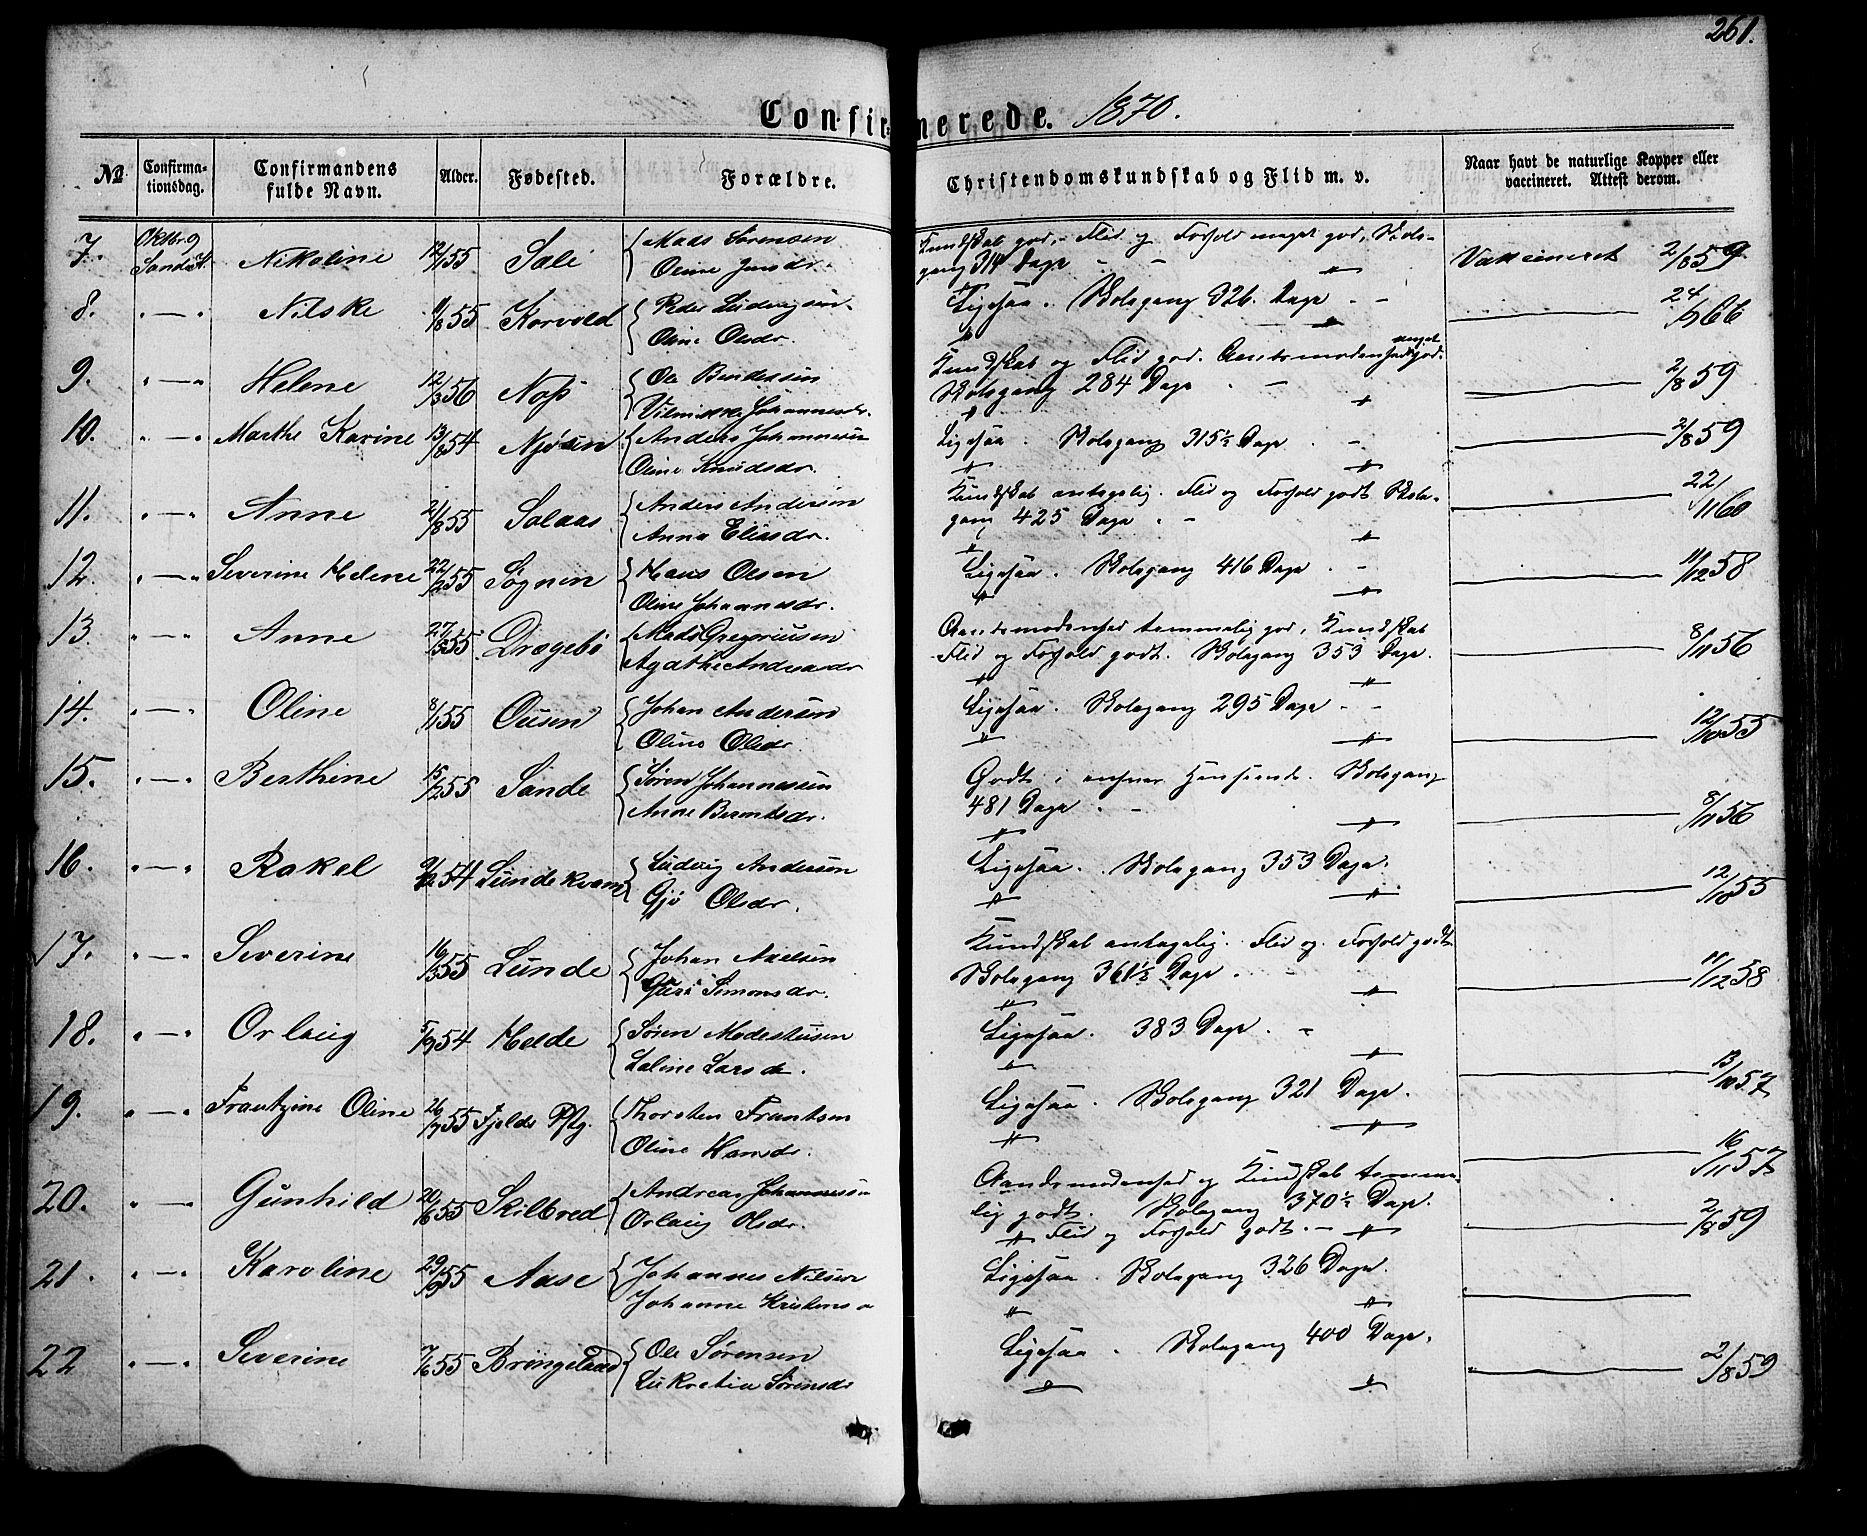 261.
Confirmerede. 1870.
№ Confirmationsdag. Confirmandens fulde Navn. Alder. Fødested. Forældre. Christendomskundskab og Flid m. v. Naar havt de naturlige Kopper eller vaccineret. Attest derom.
7. Oktbr. 9 Nikoline 12/1 55 Sale Mads Sørensen Kundskab god, - Flid og Forhold meget god, Skole-
Oline Jensdr. gang 314 Dage Vaccineret 2/8 59
8. " — " Nilske 11/8 55 Korvold Peder Ludvigsen Ligesaa. Skolegang 326 Dage - - 24/7 66
Oline Olsdr.
9. " — " Helene 12/3 56 Ole Kundskab og Flid god. Aandsmodenhed meget god.
Johannesdr. Skolegang 284 Dage - 2/8 59
10. " — " Marthe Karine 13/8 54 Njøsen Anders Johannesen Ligesaa. Skolegang 315½ Dage - 2/8 59
Oline Knudsdr.
11. " — " Anne 21/8 55 Solaas. Anders Andersen Kundskab antagelig. Flid og Forhold godt Skole-
Anna Eliasdr. gang 425 Dage - 22/11 60
12. " — " Severine Helene 22/2 55 Sognen Hans Olsen Ligesaa. Skolegang 416 Dage - 11/12 58
Oline Johannesdr.
13. " — " Anne 27/3 55 Dragebø Mads Gregoriusen Aandsmodenhed temmelig god, Kundskab
Agathe Andreasdr Flid og Forhold godt. Skolegang 353 Dage. 8/11 56
14. " — " Oline 8/1 55 Ousen Johan Andersen Ligesaa. Skolegang 295 Dage - - 12/10 55
Oline Olsdr.
15. " — " Berthine 15/2 55 Sande Søren Johannesen Godt i enhver Henseende. Skolegang
Anne Berntsdr. 481 Dage - 8/11 56
16. " — " Rakel 54 Lundekvam Ludvig Andersen Ligesaa. Skolegang 353 Dage. 12/10 55
Gjø Olsdr.
17. " — " Severine 16/3 55 Lunde Johan Axelsen Kundskab antagelig. Flid og Forhold godt
Guri Simonsdr. Skolegang 361½ Dage. 11/12 58
18. " — " Orlaug 5/9 54 Helde Søren Modestusen Ligesaa. 383 Dage. -
Laline Larsdr. 13/10 57
19. " — " Frantzine Oline 26/7 55 Fjelds Pstg. Thorsten Frantsen Ligesaa. Skolegang 321 Dage.
Oline Hansdr. 16/11 57
20. " — " Gunhild 20/6 55 Skilbred Andreas Johannesen Aandsmodenhed og Kundskab temme-
Orlaug Olsdr. lig godt. Skolegang 370½ Dage. 2/8 59
Flid og Forhold godt. -
21. " — " Karoline 29/9 55 Aase Johannes Nilsen Ligesaa. Skolegang 326 Dage.
Johanne Kristensd
22 " — " Severine 7/6 55 Bringeland Ole Sørensen Ligesaa. Skolegang 400 Dage.
Lukretia Sørensdr 2/8 59